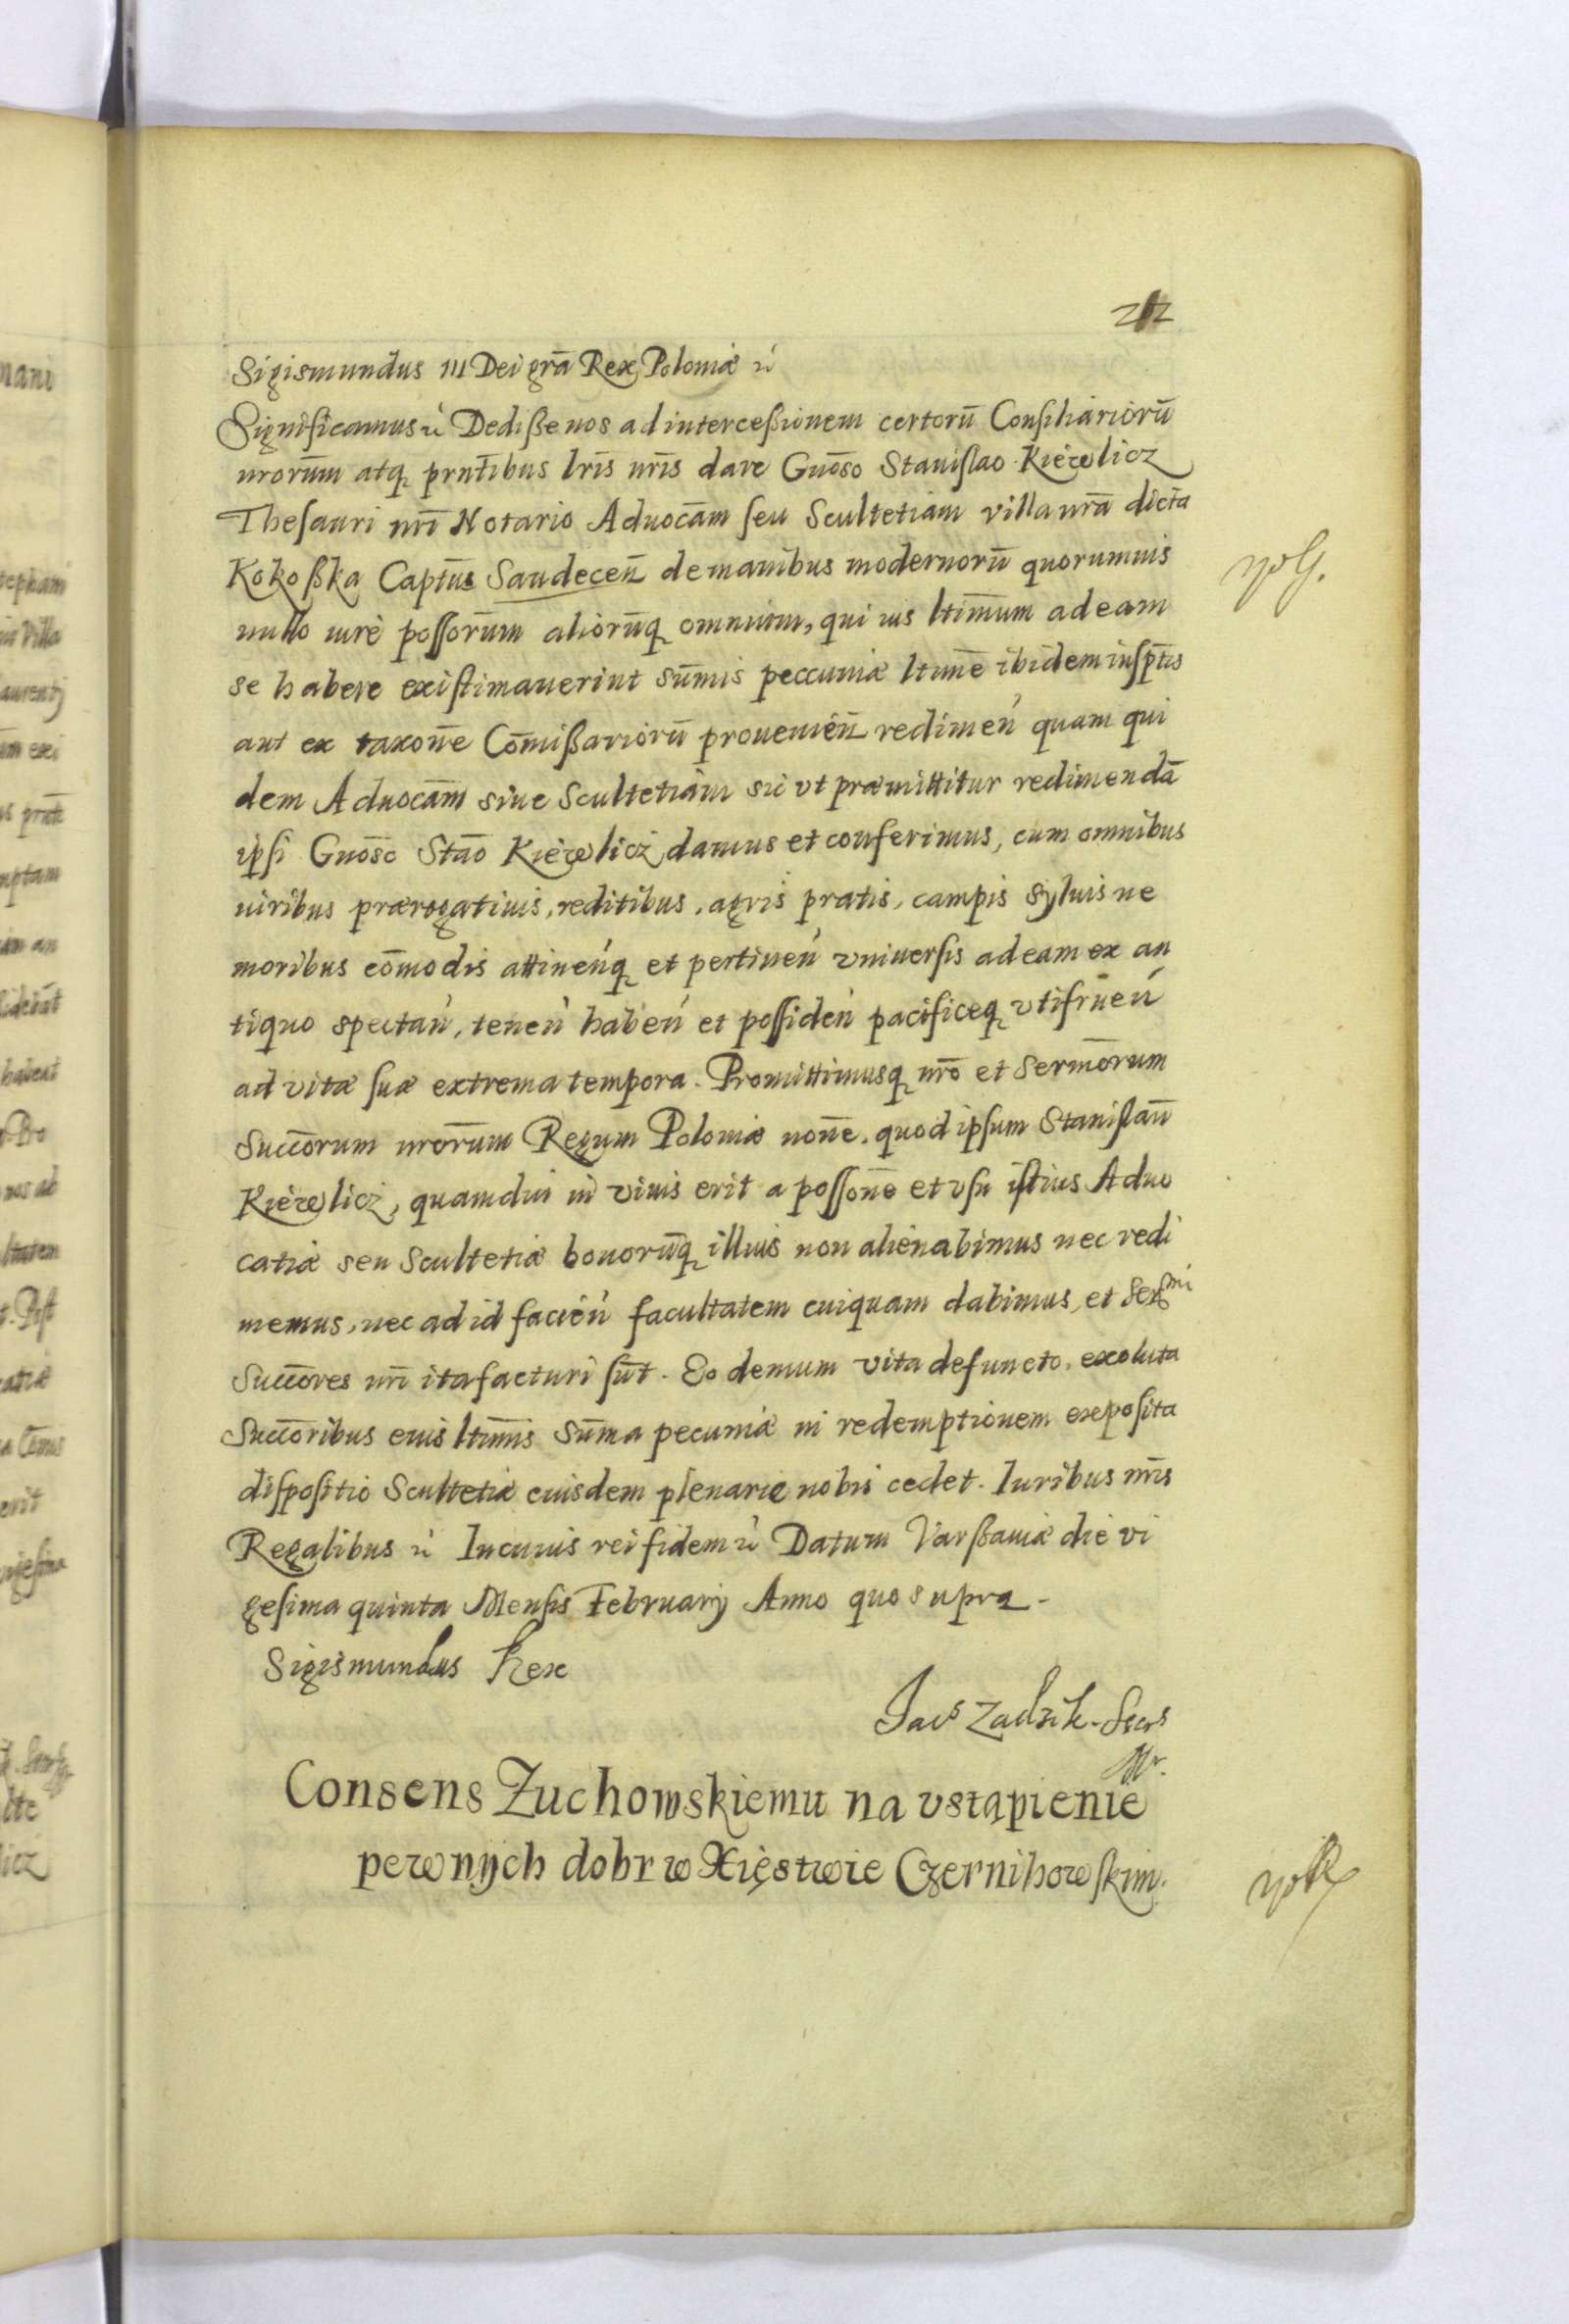 212
Sigismundus III Dei grã Rex Poloniæ rc
Significamus rc Dediße nos ad interceßionem certorũ Consiliariorũ
nrorũm atq prntĩbus lrĩs nrĩs dare Gnõso Stanislao Kiéżlicz
Thesauri nrĩ Notario Aduocãm seu Scultetiam villa nrã dicta
Kokoßka Captũs Sandeceñ de manibus modernorũ quorumuis
nullo iure possorũm aliorũq omnium, qui ius ltimũm ad eam
se habere existimauerint sũmis peccuniæ ltimẽ ibidem inspt̃is
aut ex taxonẽ Cõmißariorũ prouenieñ redimeń quam qui
dem Aduocãm siue Scultetiam sic vt præmittitur redimendã
ipsi Gnõso Stão Kiéżlicz damus et conferimus, cum omnibus
iuribus prærogatiuis, reditibus, agris pratis, campis syluis ne
moribus cõmodis attineńq et pertineń vniuersis ad eam ex an
tiquo spectań, teneń habeń et possideń pacificeq vtifrueń
ad vitæ suæ extrema tempora. Promittimusq nrõ et Sermõrum
Succõrum nrorũm Regum Poloniæ nonẽ. quod ipsum Stanislaũ
Kiéżlicz, quamdiu in viuis erit a possonẽ et vsu istius Aduo
catiæ seu Scultetiæ bonorũq illius non alienabimus nec redi
memus, nec ad id facień facultatem cuiquam dabimus, et Sermi
Succõres nrĩ ita facturi sũt. Eo demum vita defuncto, exoluta
Succõribus eius ltimĩs sũma pecuniæ in redemptionem exposita
dispositio Scultetiæ eiusdem plenarie nobis cedet. Iuribus nrĩs
Regalibus rc In cuius rei fidem rc Datum Varßauiæ die vi
gesima quinta Mensis Februarij Anno quo supra.
Sigismundus Rex
Jacs Zadzik. Secrs
Mr.
Consens Zuchowskiemu na vstąpienie
pewnych dobr w Xięstwie Czernihowskim.